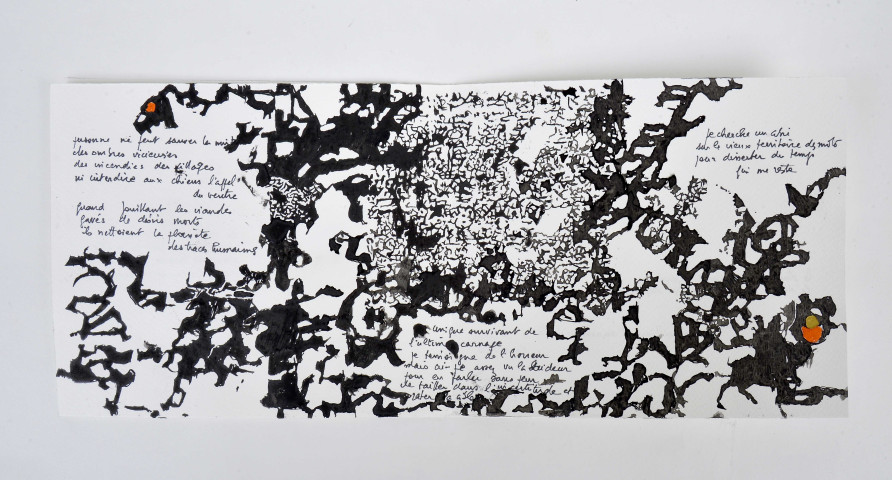 personne ne peut sauver la nuit
des ombres vicieuses
des incendies des villages
ni interdire aux chiens l'appel
du ventre
quand fouillant les viandes
gavés de désirs morts
ils nettoient la planète
des traces humaines
unique survivant de
l'ultime carnage
je témoigne de l'horreur
mais ai-je assez vu la laideur
pour en parler sans peur
dans l'incertitude et
je cherche un abri
sur le vieux territoire des mots
pour disserter du temps
qui me reste